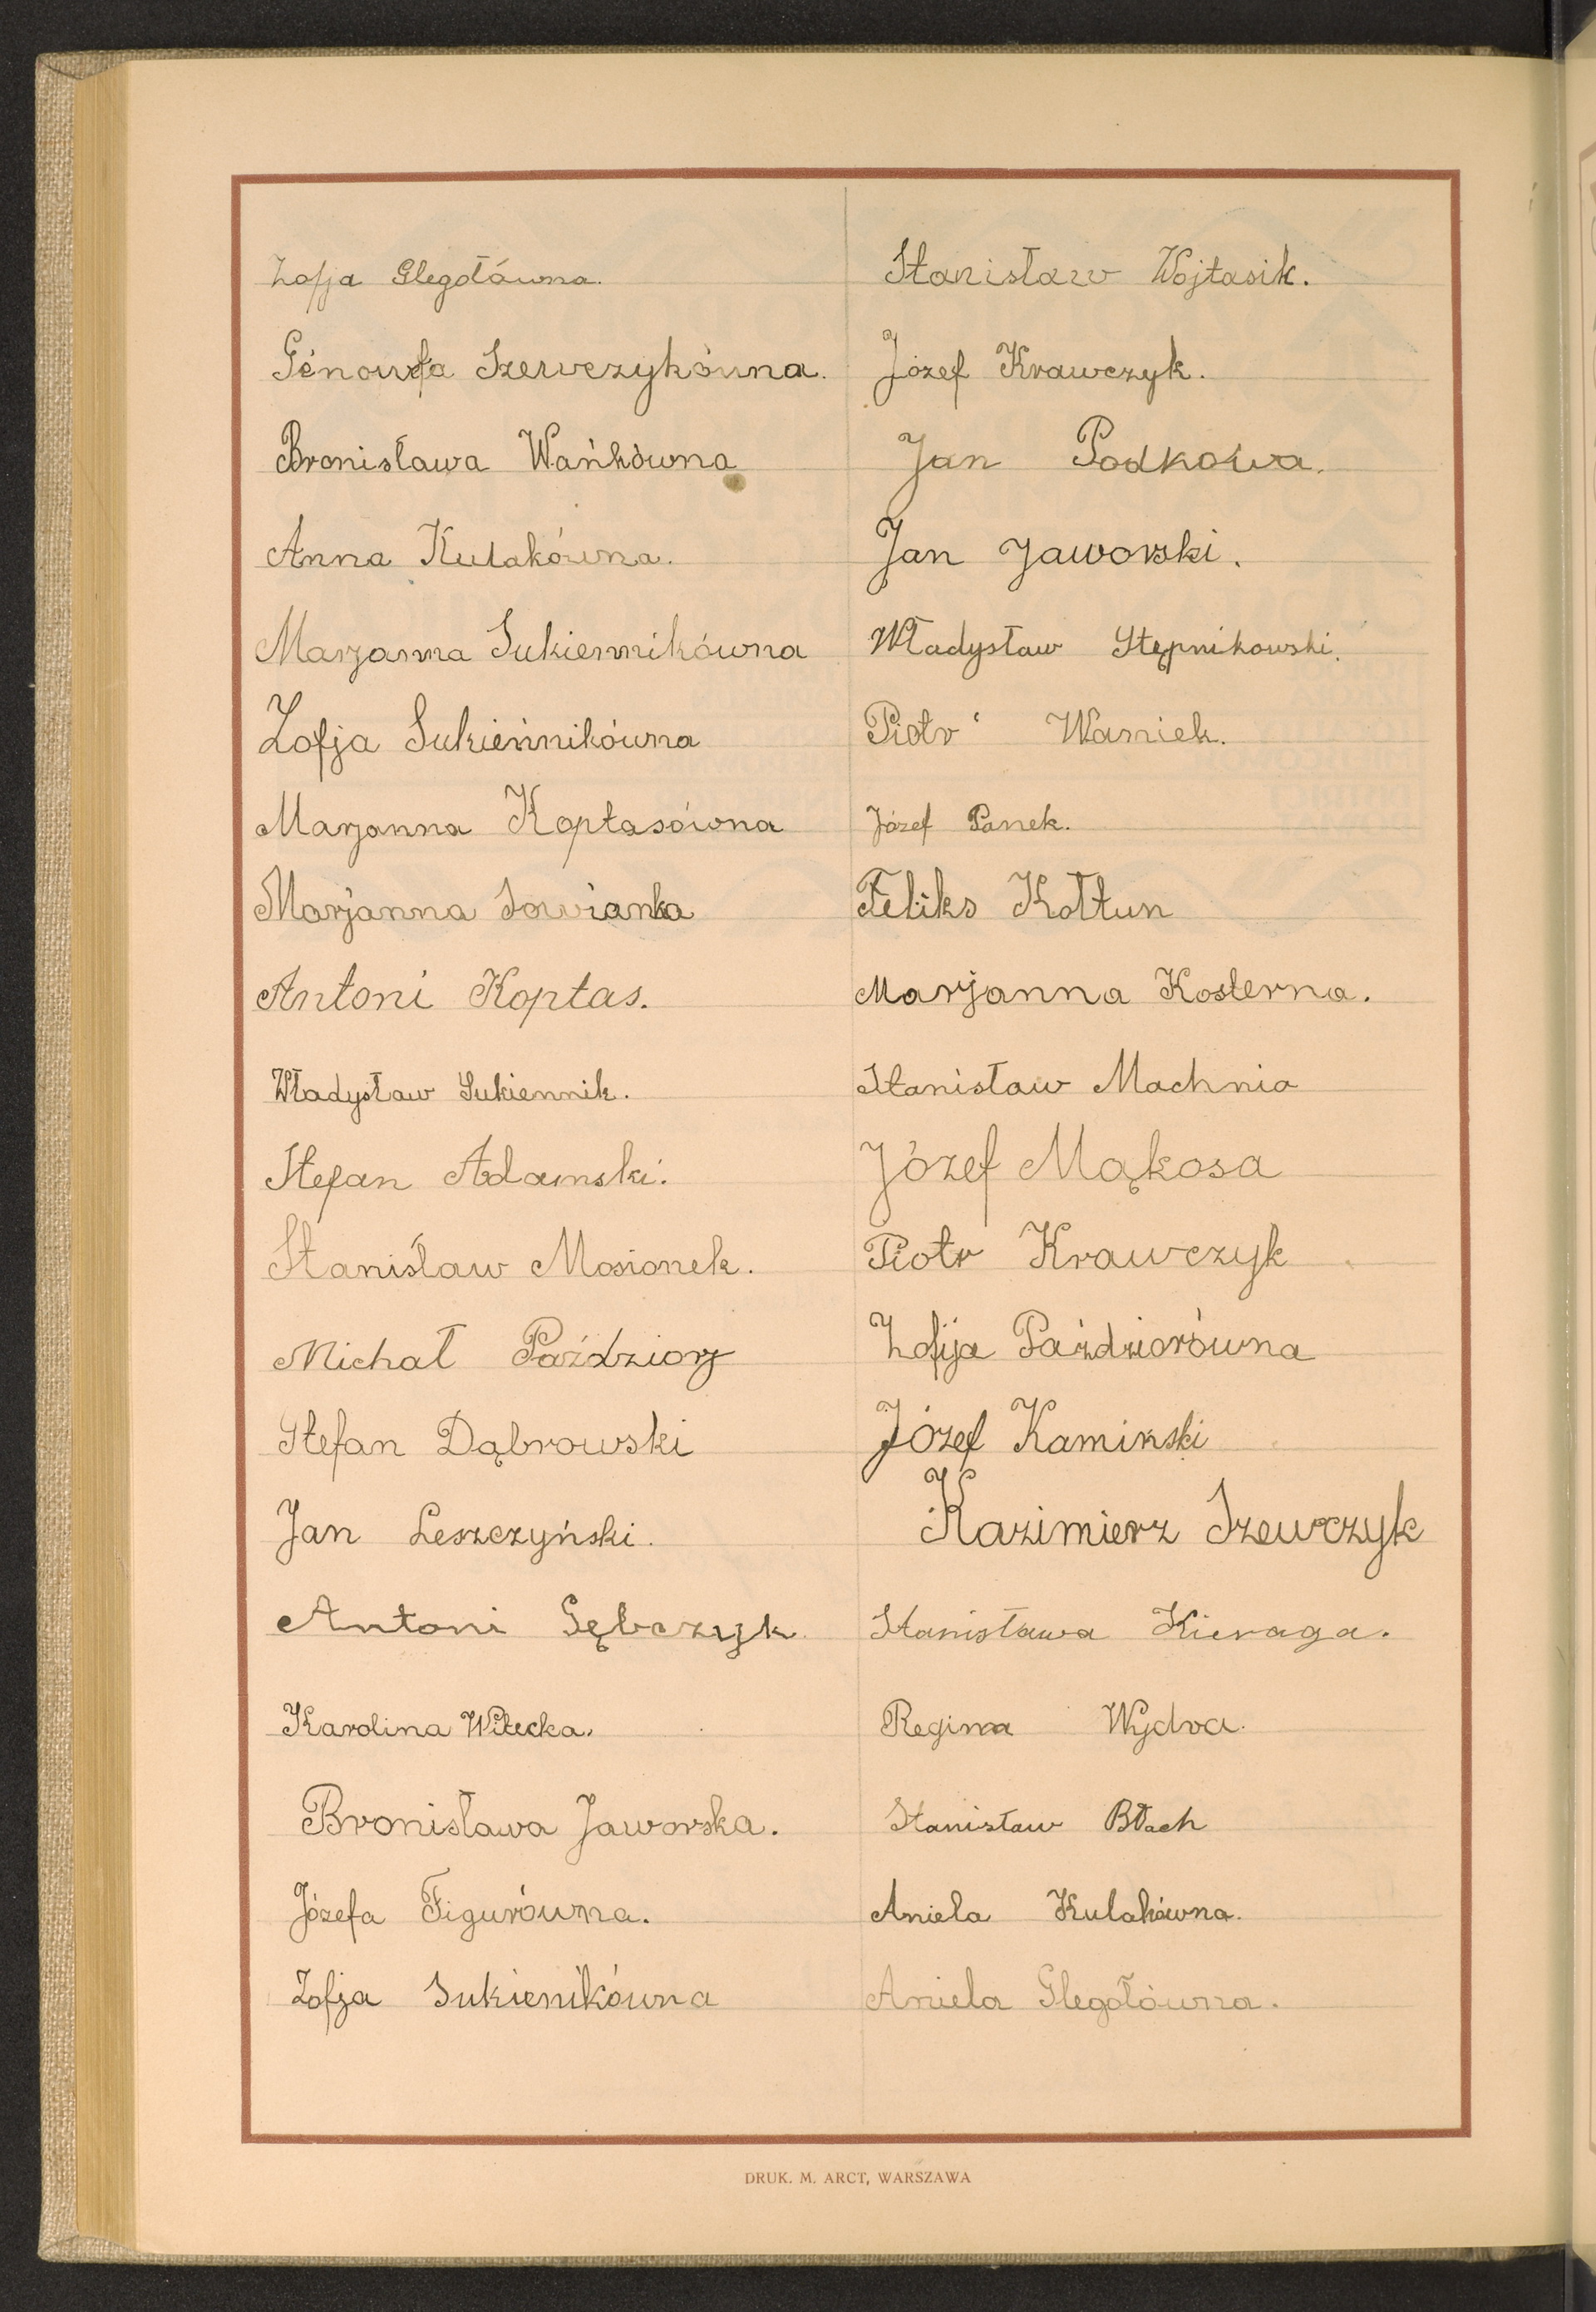 Zofja Glegołówna.
Génowefa Szewczykówna.
Bronisława Wańkówna
Anna Kulakówna.
Marjanna Sukiennikówna
Zofja Sukiennikówna
Marjanna Koptasówna
Marjanna Sowianka
Antoni Koptas.
Władysław Sukiennik.
Stefan Adamski.
Stanisław Mosionek.
Michał Paździorz
Stefan Dąbrowski
Jan Leszczyński.
Antoni Gębczyk
Karolina Witecka.
Bronisława Jaworska.
Józefa Figurówna.
Zofja Sukienikówna
Stanisław Wojtasik.
Józef Krawczyk.
Jan Podkowa.
Jan Jaworski.
Władysław Stępnikowski.
Piotr Warniek.
Józef Panek.
Feliks Kołtun
Marjanna Kosterna.
Stanisław Machnio
Józef Mąkosa
Piotr Krawczyk
Zofija Paździorówna
Józef Kaminski
Kazimierz Szewczyk
Stanisława Kieraga.
Regina Wydra.
Stanisław Błach
Aniela Kulakówna.
Aniela Glegołówna.
DRUK. M. ARCT, WARSZAWA